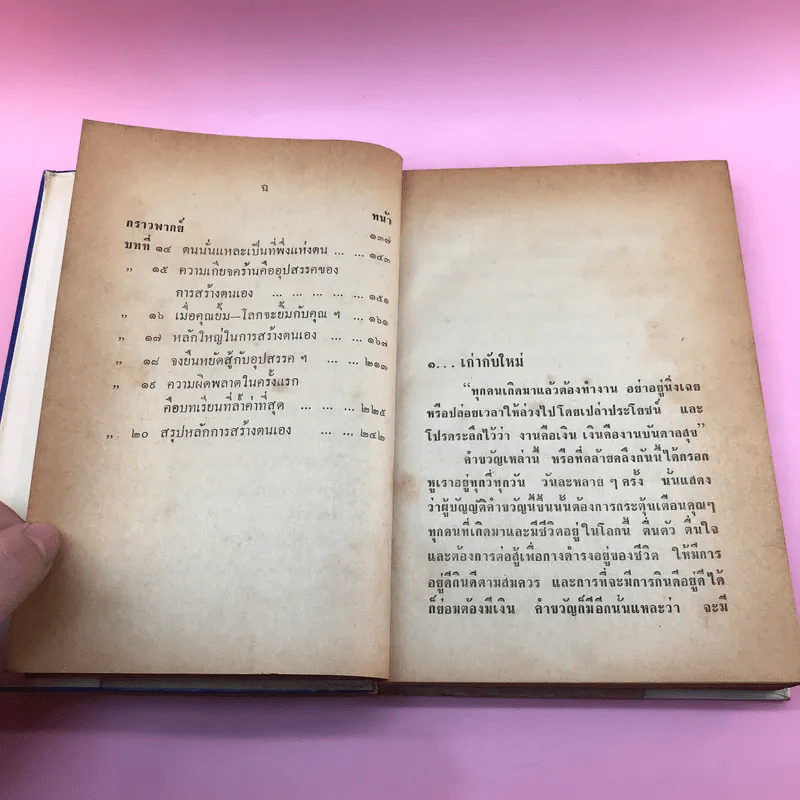 ฉ
กราวพากย์ หน้า
บทที่ ๑๔ ตนนั่นแหละเป็นที่พึ่งแห่งตน ... ... ๑๓๗
” ๑๕ ความเกียจคร้านคืออุปสรรคของ ๑๔๓
การสร้างตนเอง ... ... ... ... ... ๑๕๑
” ๑๖ เมื่อคุณยิ้ม—โลกจะยิ้มกับคุณ ๆ ... ๑๖๑
” ๑๗ หลักใหญ่ในการสร้างตนเอง ... ๑๖๗
” ๑๘ จงยืนหยัดสู้กับอุปสรรค ๆ ... ๒๑๓
” ๑๙ ความผิดพลาดในครั้งแรก
คือบทเรียนที่ล้ำค่าที่สุด ... ... ... ๒๒๕
” ๒๐ สรุปหลักการสร้างตนเอง ... ... ๒๔๒
๑... เก่ากับใหม่
“ทุกคนเกิดมาแล้วต้องทำงาน อย่าอยู่นิ่งเฉย
หรือปล่อยเวลาให้ล่วงไปโดยเปล่าประโยชน์ และ
โปรดระลึกไว้ว่า งานคือเงิน เงินคืองานบันดาลสุข”
คำขวัญเหล่านี้ หรือที่คล้ายคลึงกันนี้ได้กรอก
หูเราอยู่ทุกวี่ทุกวัน วันละหลาย ๆ ครั้ง นั่นแสดง
ว่าผู้บัญญัติคำขวัญนี้ขึ้นนั้นต้องการกระตุ้นเตือนคุณๆ
ทุกคนที่เกิดมาและมีชีวิตอยู่ในโลกนี้ ตื่นตัว ตื่นใจ
และต้องการต่อสู้เพื่อทางดำรงอยู่ของชีวิต ให้มีการ
อยู่ดีกินดีตามสมควร และการที่จะมีการกินดีอยู่ดีได้
ก็ย่อมต้องมีเงิน คำขวัญก็มีอีกนั่นแหละว่า จะมี